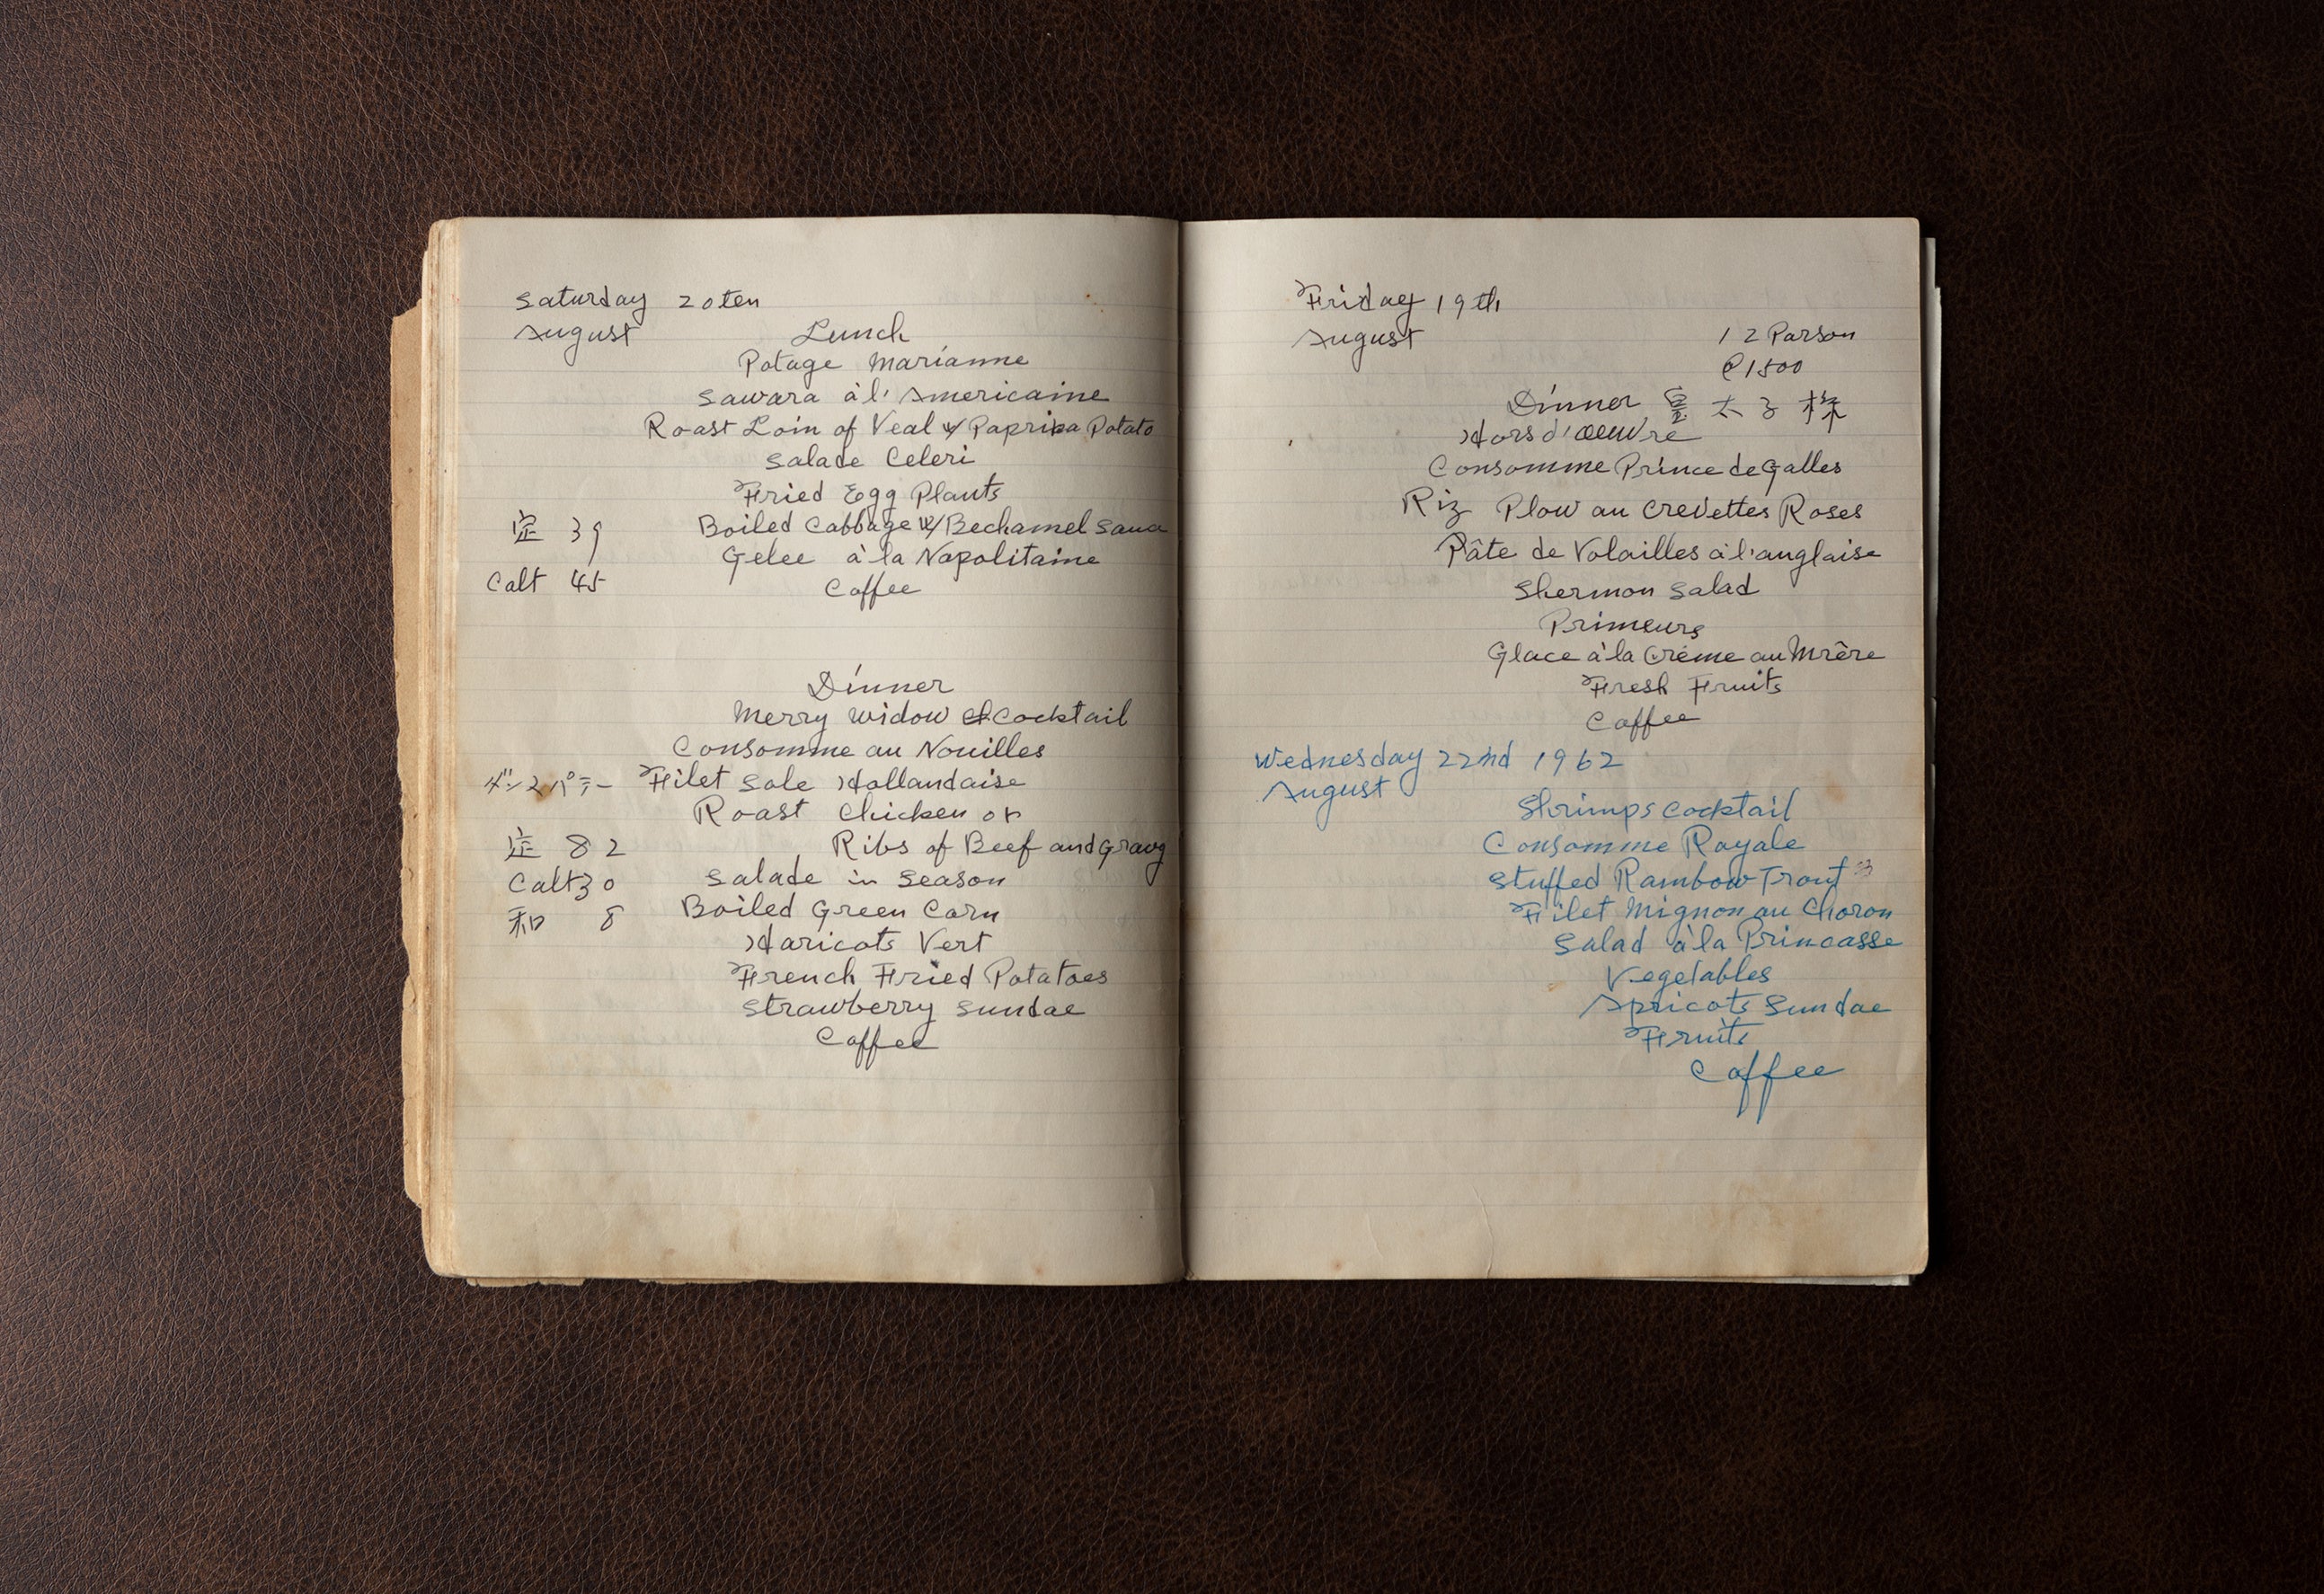 Saturday 20ten
August Lunch
Potage Marianne
Sawara à l' Americaine
Roast Loin of Veal w/ Paprika Potato
Salade Celeri
Fried Egg Plants
定 39 Boiled Cabbage w/ Bechamel Sauce
Gelee à la Napolitaine
Calt 45 Coffee
Dinner
Merry Widow Cocktail
Consomme au Nouilles
ダンスパテー Filet Sole Hollandaise
Roast Chicken or
定 82 Ribs of Beef and Gravy
Calt 30 Salade in Season
和 8 Boiled Green Corn
Haricots Vert
French Fried Potatoes
Strawberry Sundae
Coffee
Friday 19th
August 12 Parson
@1500
Dinner 皇太子様
Hors d'oeuvre
Consomme Prince de Galles
Riz Plow au Crevettes Roses
Pâte de Volailles à l'anglaise
Shermon Salad
Primeurs
Glace à la Créme au Mrêre
Fresh Fruits
Coffee
Wednesday 22nd 1962
August
Shrimps Cocktail
Consomme Royale
Stuffed Rambow Trout
Filet Mignon au Choron
Salad à la Princasse
Vegetables
Apricots Sundae
Fruits
Coffee